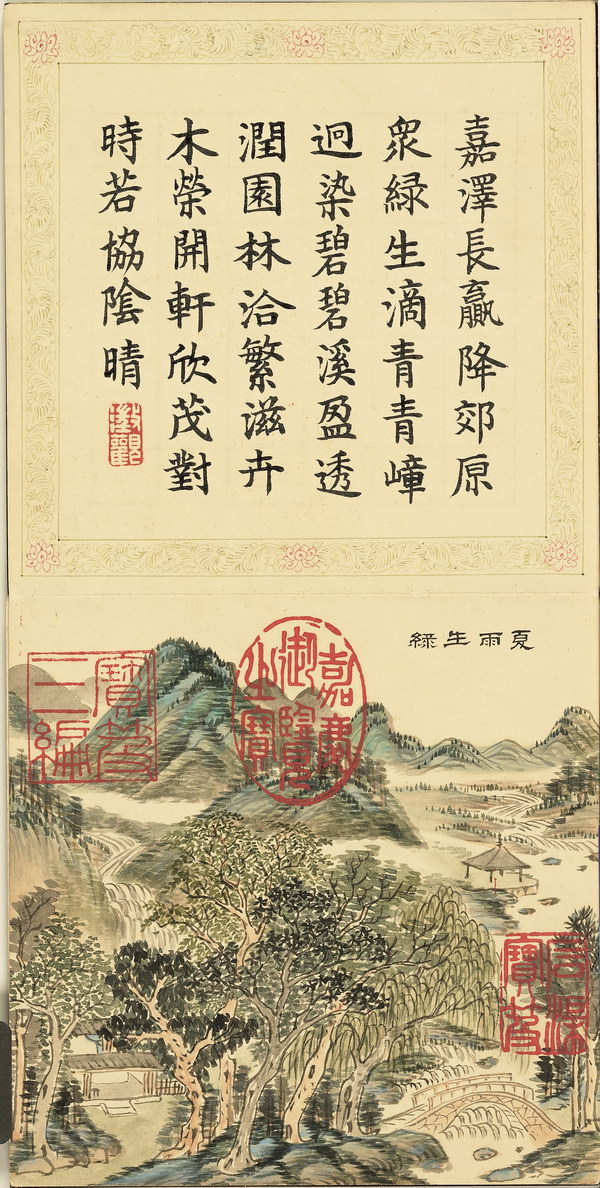 嘉澤長贏降郊原
衆緑生滴青青嶂
迥染碧碧溪盈透
潤園林洽繁滋卉
木榮開軒欣茂對
時若協陰晴
澂觀
夏雨生緑
嘉慶御覽之寶
寶笈三編
石渠寶笈